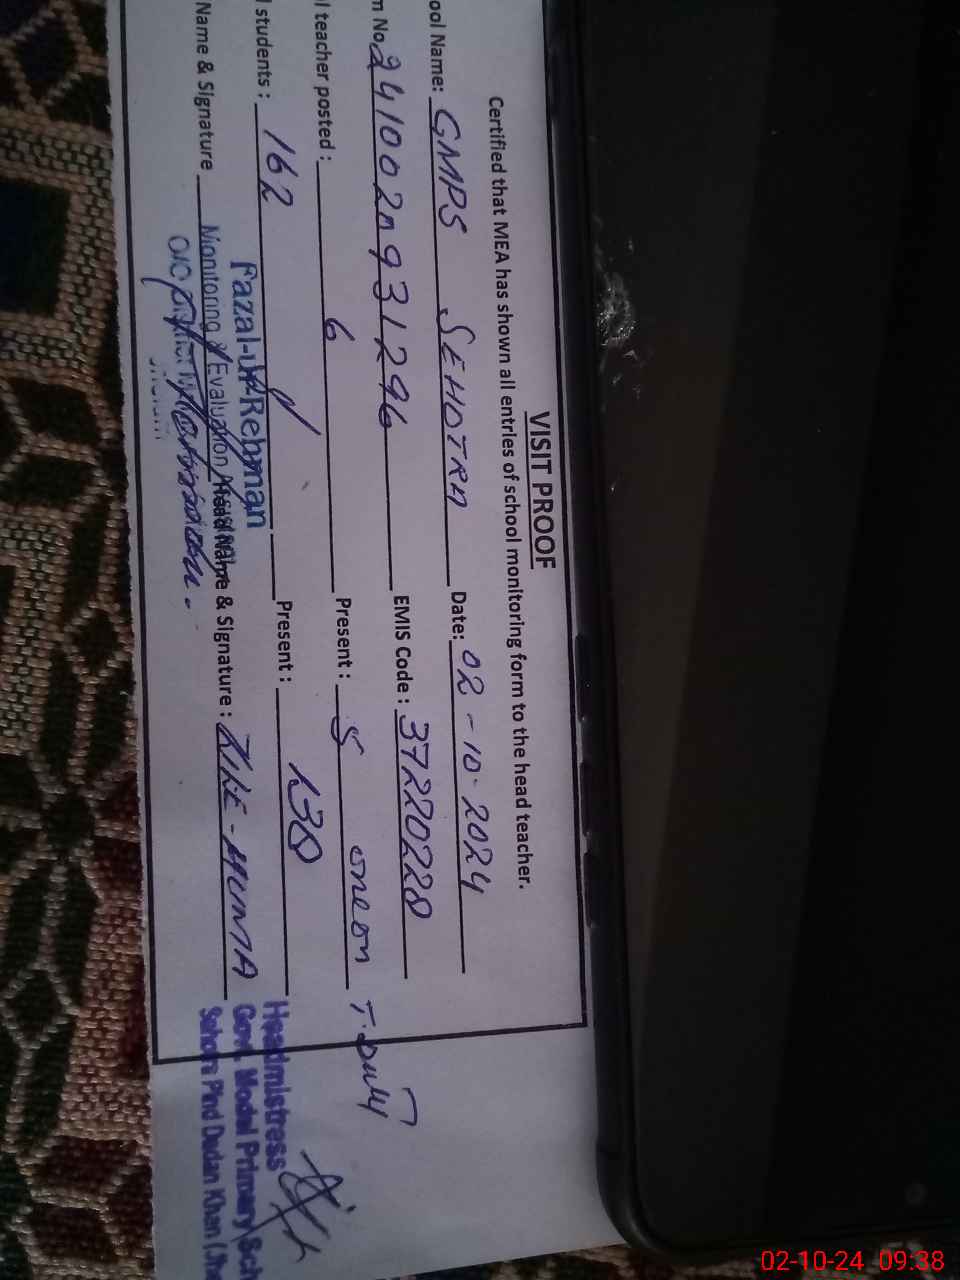 VISIT PROOF
Certified that MEA has shown all entries of school monitoring form to the head teacher.
ool Name: GMPS SEHOTRA Date: 02-10-2024
m No 2410020931296 EMIS Code: 37220228
l teacher posted: 6 Present: 5 one on T. Duty
l students: 162 Present: 130
Name & Signature Head Name & Signature: ZILE-HUMA
Fazal-ur-Rehman
Monitoring & Evaluation Assistant
O/O
Headmistress
Govt. Model Primary Sch
Sehotra Pind Dadan Khan (Jhe
02-10-24 09:38